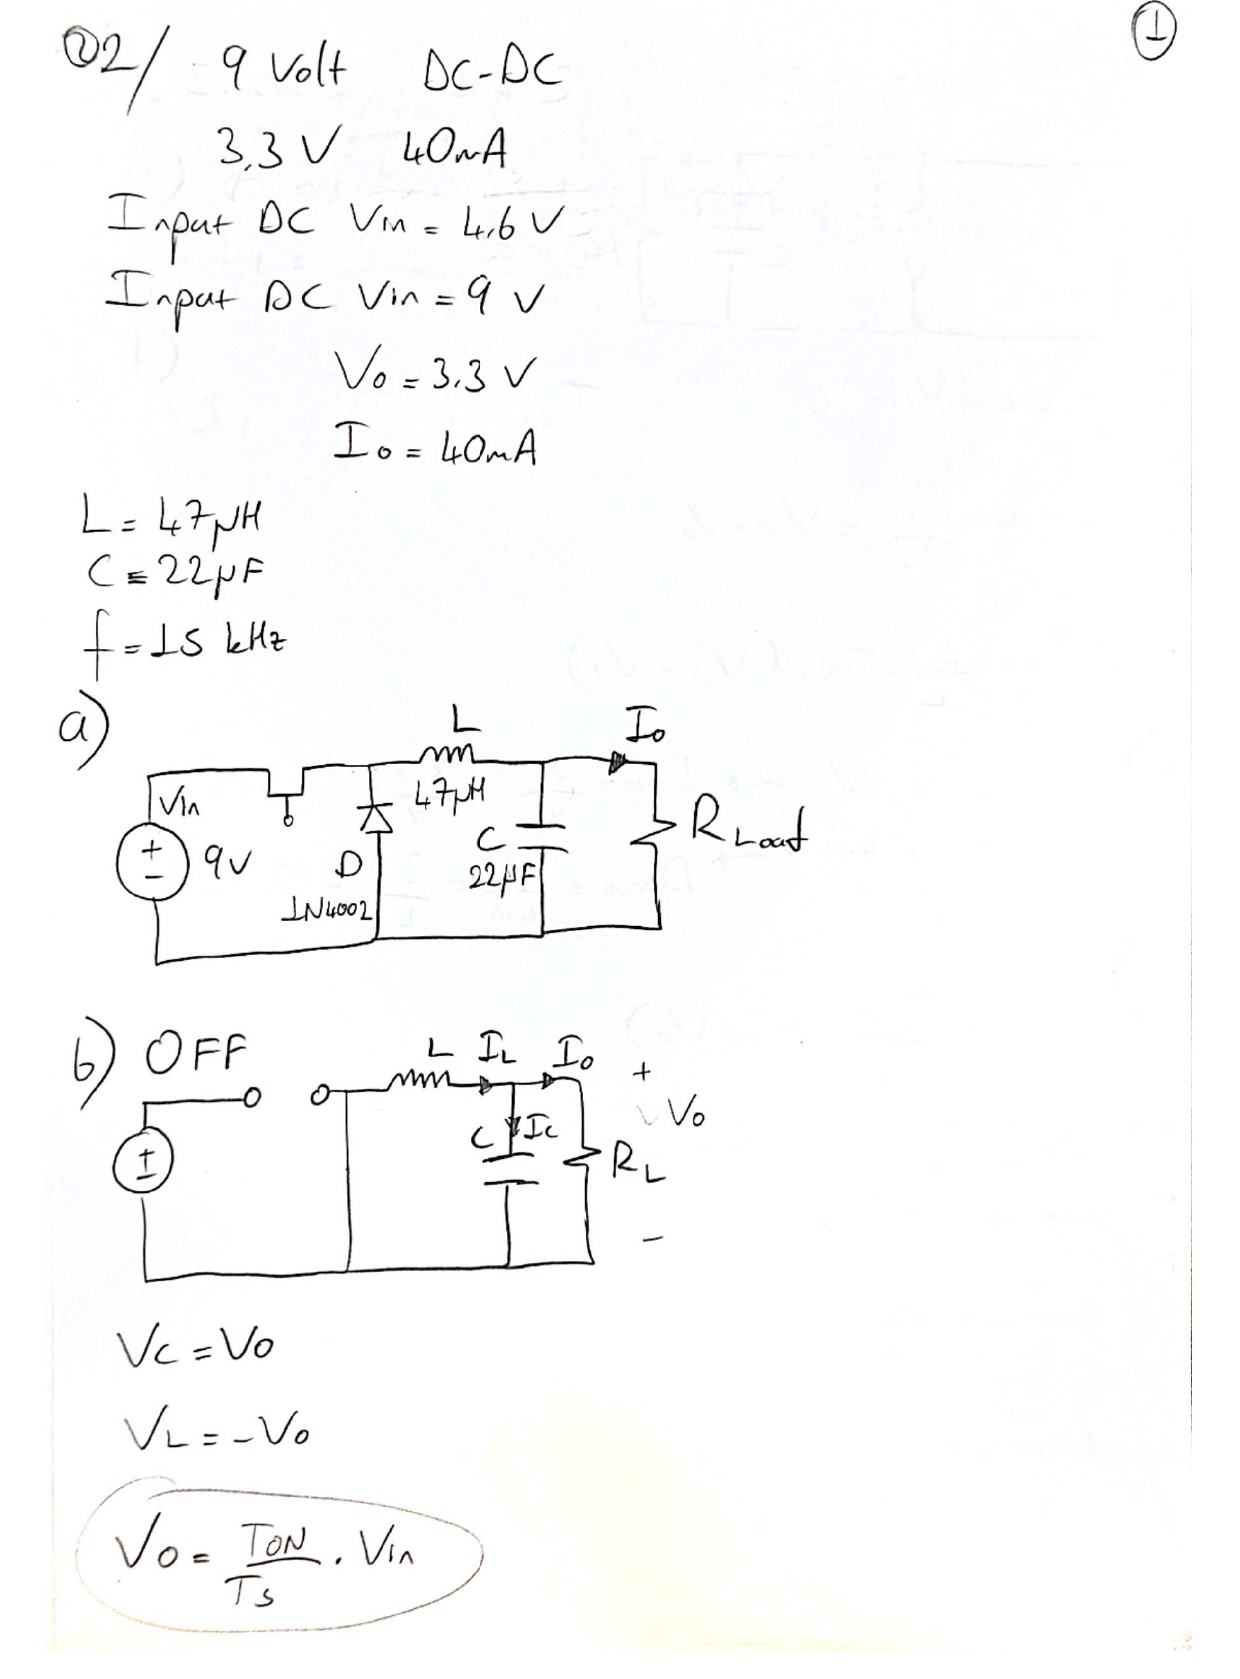 ①
Q2/ 9 Volt DC-DC
3,3 V 40mA
Input DC Vin = 4,6 V
Input DC Vin = 9 V
Vo = 3.3 V
Io = 40mA
L = 47μH
C = 22μF
f = 15 kHz
a)
L Io
Vin 47μH
+ - 9V D C RLoad
1N4002 22μF
b) OFF L IL Io +
C Ic Vo
+ - RL
-
Vc = Vo
VL = -Vo
Vo = TON/Ts . Vin